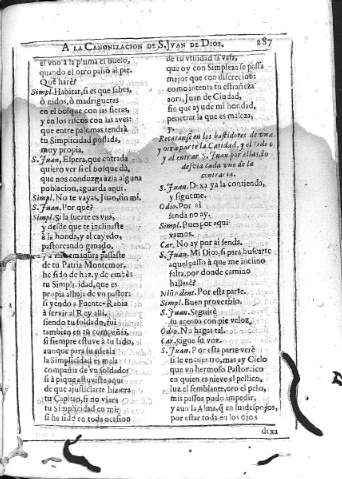 A LA CANONIZACION DE S. JVAN DE DIOS. 287
el vno a la pluma el buelo,
quando el otro passò al pie.
Què harè?
Simpl. Habitar, si es que sabes,
ò nidos, ò madrigueras
en el bosque con las fieras,
y en los riscos con las aves:
que entre palomas tendrà
tu Simplicidad posada,
muy propia.
S. Juan. Espera, que entrada
quiero ver si el bosque dà,
que nos conduzga azia alguna
poblacion, aguarda aqui.
Simpl. No te vayas, Juan, sin mi.
S. Juan. Por què?
Simpl. Si la suerte es vna,
y desde que te inclinaste
à la honda, y al cayado,
pastoreando ganado,
de tu Patria Montemor,
he sido de
tu Simplicidad, que es
propia alhaja de vn pastor:
si yendo a Fuente-Rabia
à servir al Rey allì,
siendo tu soldado, fui
tambien en tu compañia,
si siempre estuve à tu lado,
aunque para su
la Simplicidad es mala
compañia de vn soldado:
si à pique estuviste aqui
de que ajusticiarte hiziera
tu Capitan, si no viera
tu Simplicidad en mi:
si he sido en todo ocasion
de tu virtud
que oy con Simpleza se passa
mejor que con discrecion:
como intenta tu estrañeza
aora, Juan de Ciudad,
sin que ayude mi bondad,
penetrar la que es maleza,
y.
Recatanse en los bastidores de vna,
y otra parte la Castidad, y el Odio,
y al entrar S. Juan por ellas, lo
desvia cada vno de la
contraria.
S. Juan. Dexa ya la contienda,
y sigueme.
Odio. Por aì
senda no ay.
Simpl. Pues por aqui
vamos.
Car. No ay por aì senda.
S. Juan. Mi Dios, si para buscarte
aquel passo à que me inclino
falta, por donde camino
hallarè?
Niño dent. Por esta parte.
Simpl. Buen proverbio.
S. Juan. Seguirè
su acento con pie veloz.
Odio. No hagas tal.
Car. Sigue su voz.
S. Juan. Por esta parte verè
si le encuentro, mas ay Cielo
que vn hermoso Pastorcico
en quien es nieve el pellico,
luz el semblante, oro el pelo,
mis passos pudo impedir,
y aun la Alma, en sus despojos,
por estar toda en los ojos